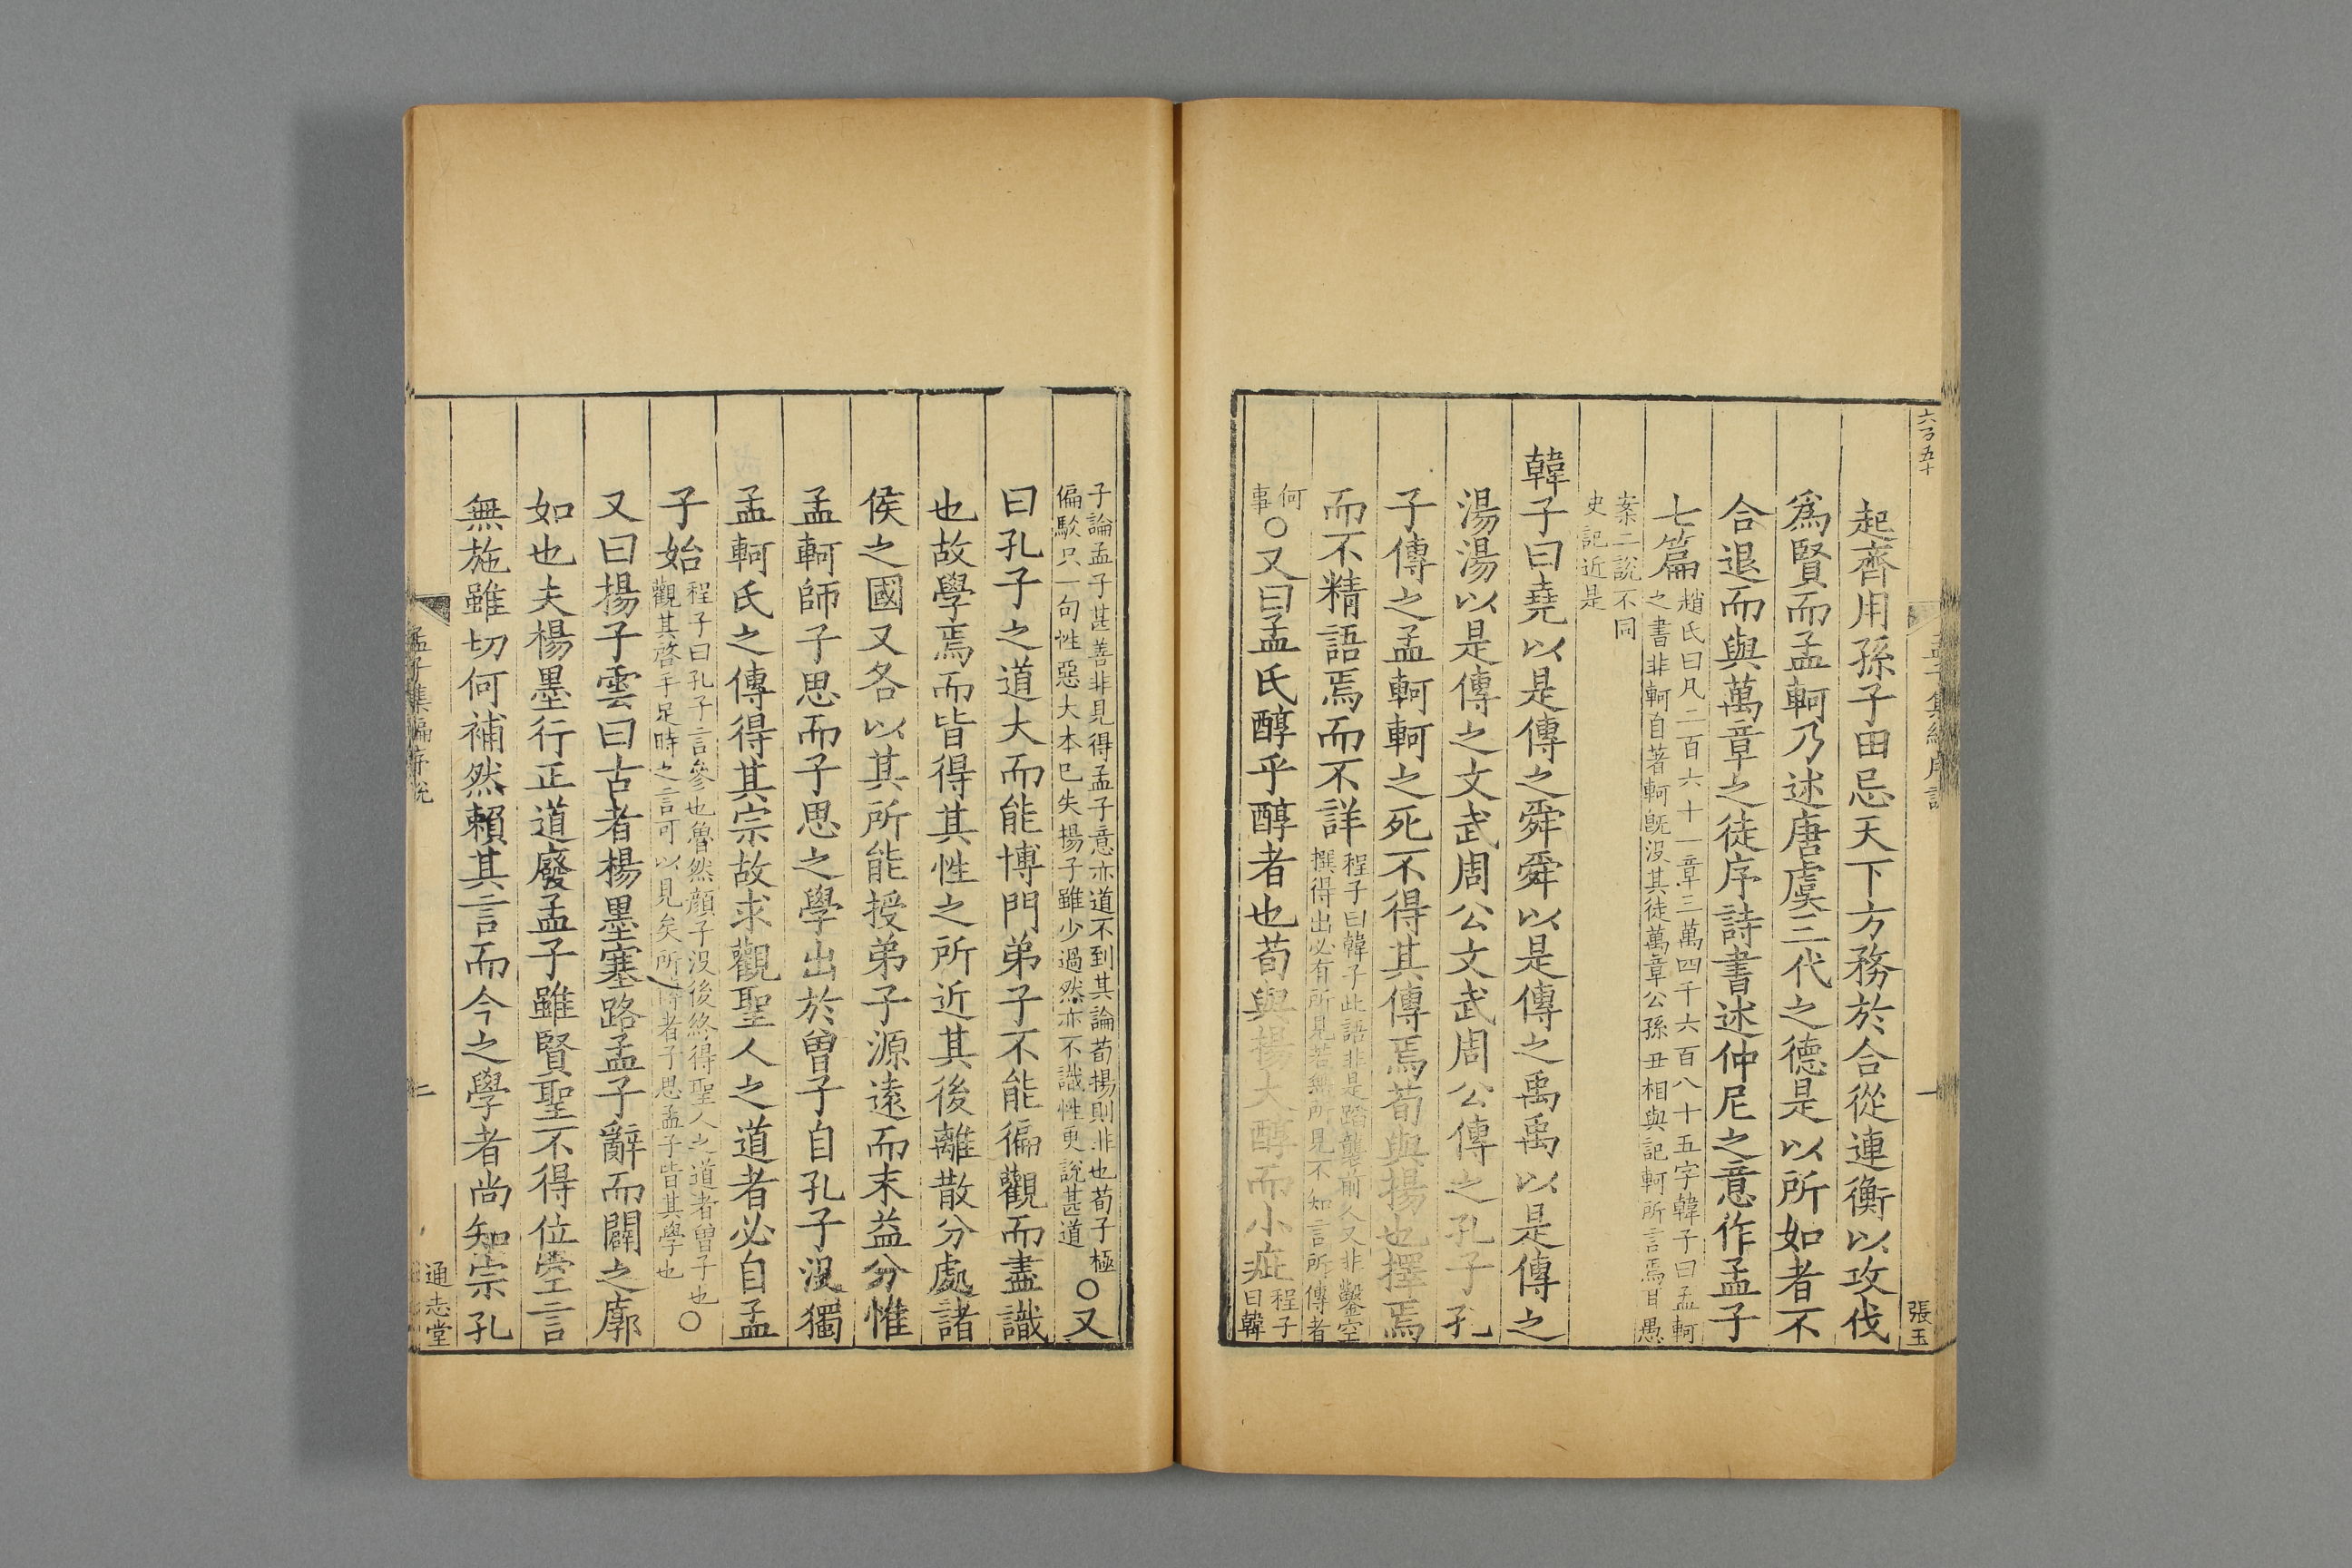 六百五十
張玉
起齊用孫子田忌天下方務於合從連衡以攻伐
爲賢而孟軻乃述唐虞三代之德是以所如者不
合退而與萬章之徒序詩書述仲尼之意作孟子
七篇
趙氏曰凡二百六十一章三萬四千六百八十五字韓子曰孟軻
之書非軻自著軻旣没其徒萬章公孫丑相與記軻所言焉耳愚
案二說不同
史記近是
韓子曰堯以是傳之舜舜以是傳之禹禹以是傳之
湯湯以是傳之文武周公文武周公傳之孔子孔
子傳之孟軻軻之死不得其傳焉荀與揚也擇焉
而不精語焉而不詳
程子曰韓子此語非是蹈襲前人又非鑿空
撰得出必有所見若無所見不知言所傳者
何
事
○又曰孟氏醇乎醇者也荀與揚大醇而小疵
程子
曰韓
子論孟子甚善非見得孟子意亦道不到其論荀揚則非也荀子極
偏駁只一句性惡大本已失揚子雖少過然亦不識性更說甚道
○又
曰孔子之道大而能博門弟子不能徧觀而盡識
也故學焉而皆得其性之所近其後離散分處諸
侯之國又各以其所能授弟子源遠而末益分惟
孟軻師子思而子思之學出於曾子自孔子沒獨
孟軻氏之傳得其宗故求觀聖人之道者必自孟
子始
程子曰孔子言參也魯然顔子没後終得聖人之道者曾子也
觀其啓手足時之言可以見矣所傳者子思孟子皆其學也
○
又曰揚子雲曰古者楊墨塞路孟子辭而闢之廓
如也夫楊墨行正道廢孟子雖賢聖不得位空言
無施雖切何補然賴其言而今之學者尚知宗孔
孟子集編序說
二
通志堂